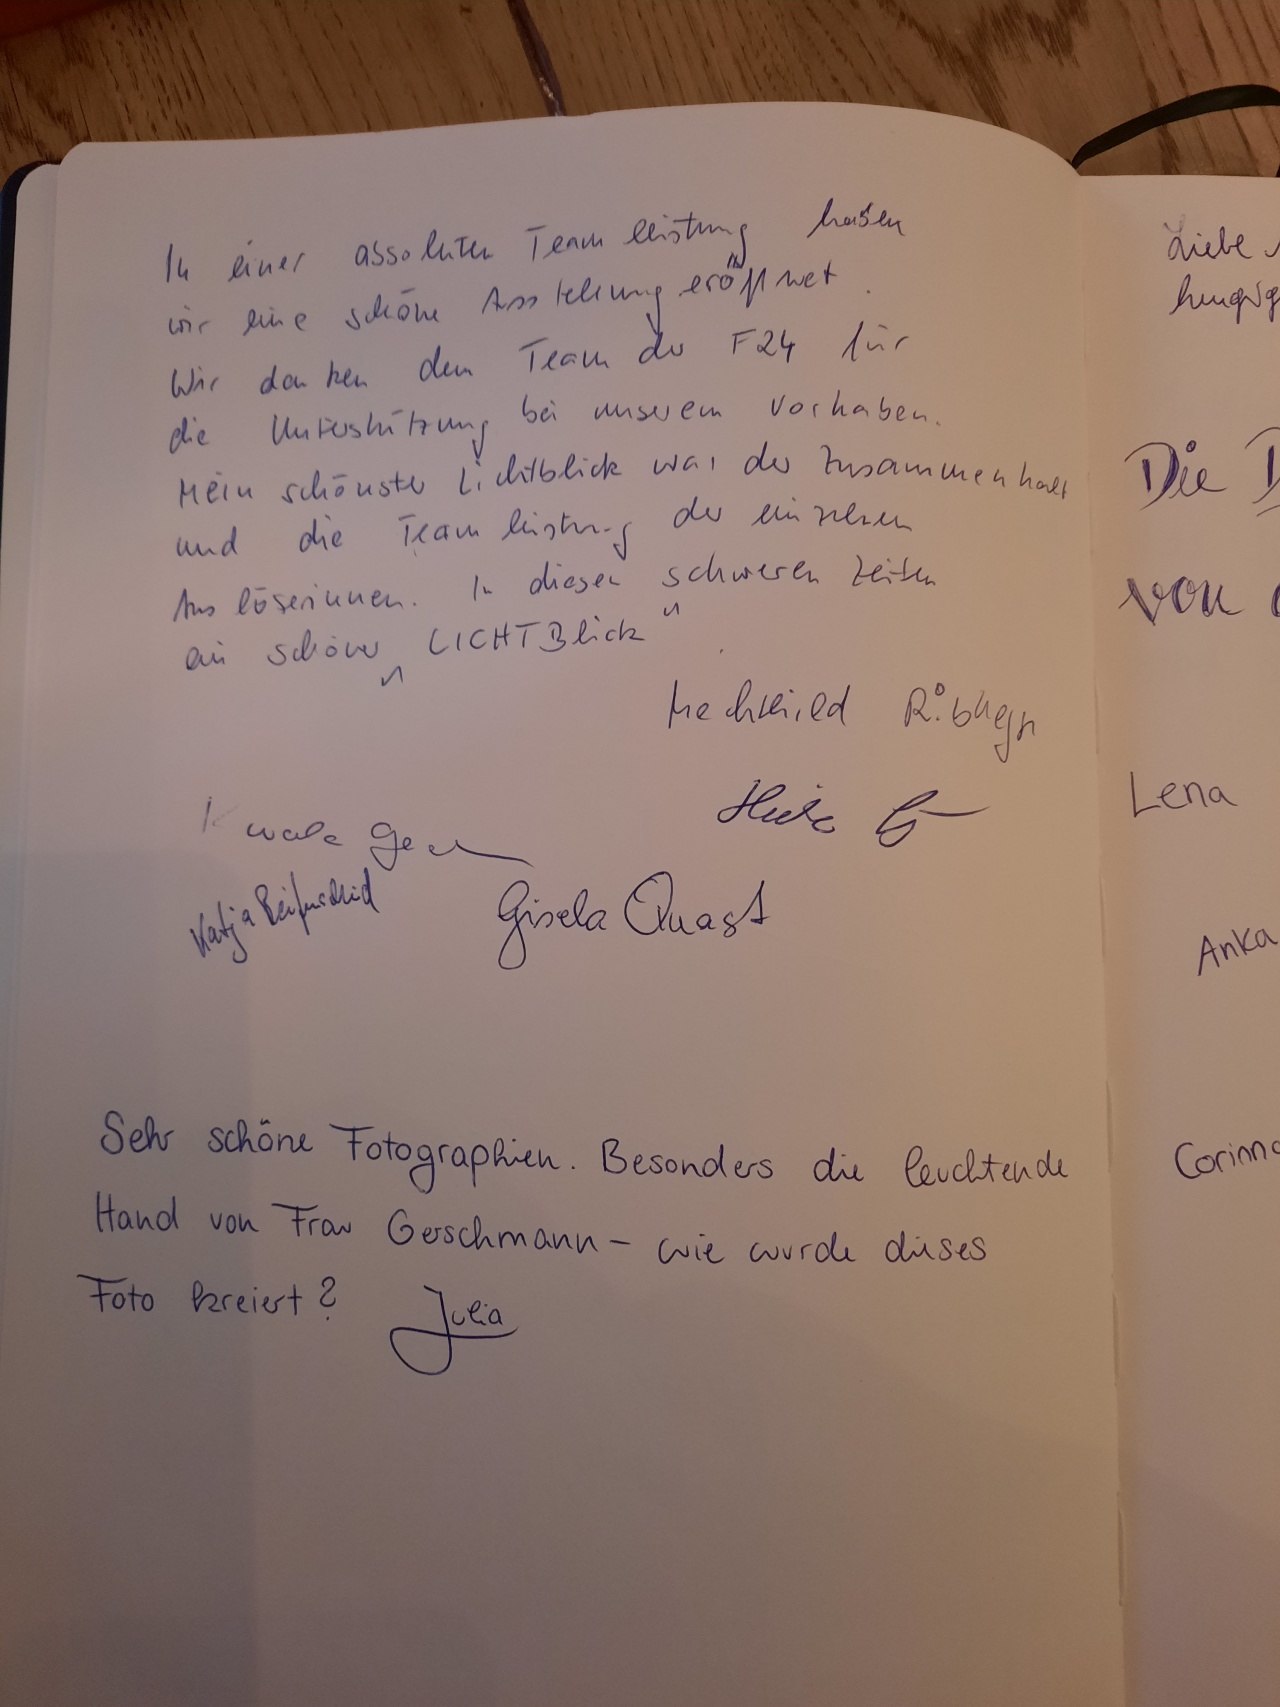 In einer absoluten Teamleistung haben
wir eine schöne Ausstellung eröffnet.
Wir danken dem Team der F24 für
die Unterstützung bei unserem Vorhaben.
Mein schönster Lichtblick war der Zusammenhalt
und die Teamleistung der einzelnen
Auslöserinnen. In diesen schweren Zeiten
ein schöner "LICHTBlick".
Mechthild
Gisela Quast
Katja
Sehr schöne Fotographien. Besonders die leuchtende
Hand von Frau Gerschmann – wie wurde dieses
Foto kreiert? Julia
Liebe
Die
von
Lena
Anka
Corinna